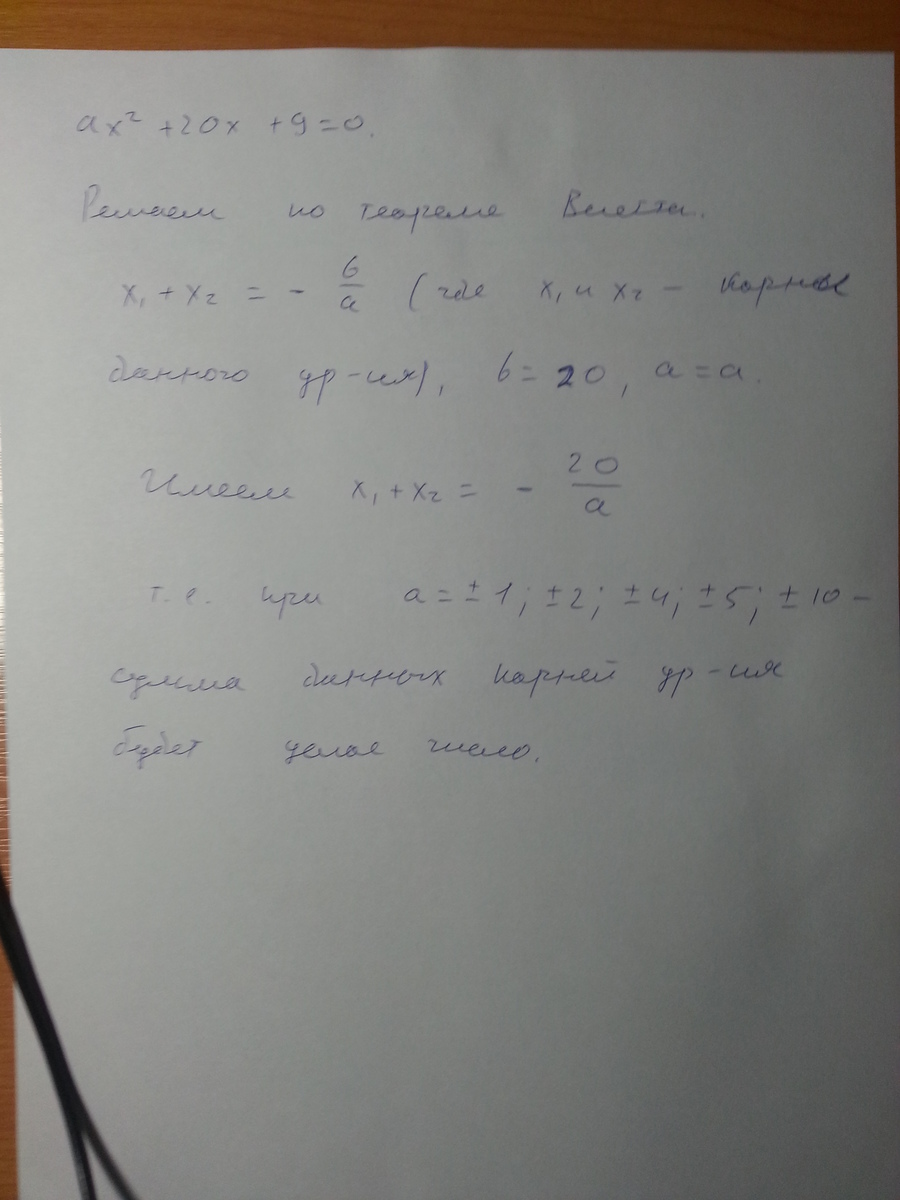 ax² +20x +9=0.
Решаем по теореме Виетта.
x₁ + x₂ = - b/a (где x₁ и x₂ - корни
данного ур-ия), b = 20, a = a.
Имеем x₁ + x₂ = - 20/a
т.е. при a = ± 1; ± 2; ± 4; ± 5; ± 10 -
сумма данных корней ур-ия
будет целое число.